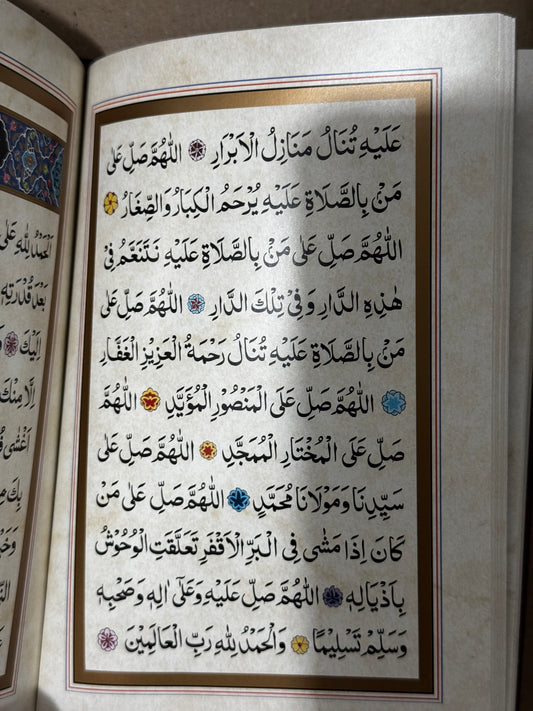 عَلَيْهِ تُنَالُ مَنَازِلُ الْاَبْرَارِ اَللّٰهُمَّ صَلِّ عَلٰى
مَنْ بِالصَّلَاةِ عَلَيْهِ يُرْحَمُ الْكِبَارُ وَالصِّغَارُ
اَللّٰهُمَّ صَلِّ عَلٰى مَنْ بِالصَّلَاةِ عَلَيْهِ نَتَنَعَّمُ فِيْ
هٰذِهِ الدَّارِ وَفِيْ تِلْكَ الدَّارِ اَللّٰهُمَّ صَلِّ عَلٰى
مَنْ بِالصَّلَاةِ عَلَيْهِ تُنَالُ رَحْمَةُ الْعَزِيْزِ الْغَفَّارِ
اَللّٰهُمَّ صَلِّ عَلَى الْمَنْصُوْرِ الْمُؤَيَّدِ اَللّٰهُمَّ
صَلِّ عَلَى الْمُخْتَارِ الْمُمَجَّدِ اَللّٰهُمَّ صَلِّ عَلٰى
سَيِّدِنَا وَمَوْلَانَا مُحَمَّدٍ اَللّٰهُمَّ صَلِّ عَلٰى مَنْ
كَانَ اِذَا مَشٰى فِي الْبَرِّ الْاَقْفَرِ تَعَلَّقَتِ الْوُحُوْشُ
بِاَذْيَالِهِ اَللّٰهُمَّ صَلِّ عَلَيْهِ وَعَلٰٓى اٰلِهِ وَصَحْبِهِ
وَسَلِّمْ تَسْلِيْمًا وَالْحَمْدُ لِلّٰهِ رَبِّ الْعَالَمِيْنَ
اَلْحَمْدُ لِلّٰهِ عَلٰى
بَعْدَ قُدْرَتِهِ
اِلَيْكَ
اِلَّا مِنْكَ
بِكَ